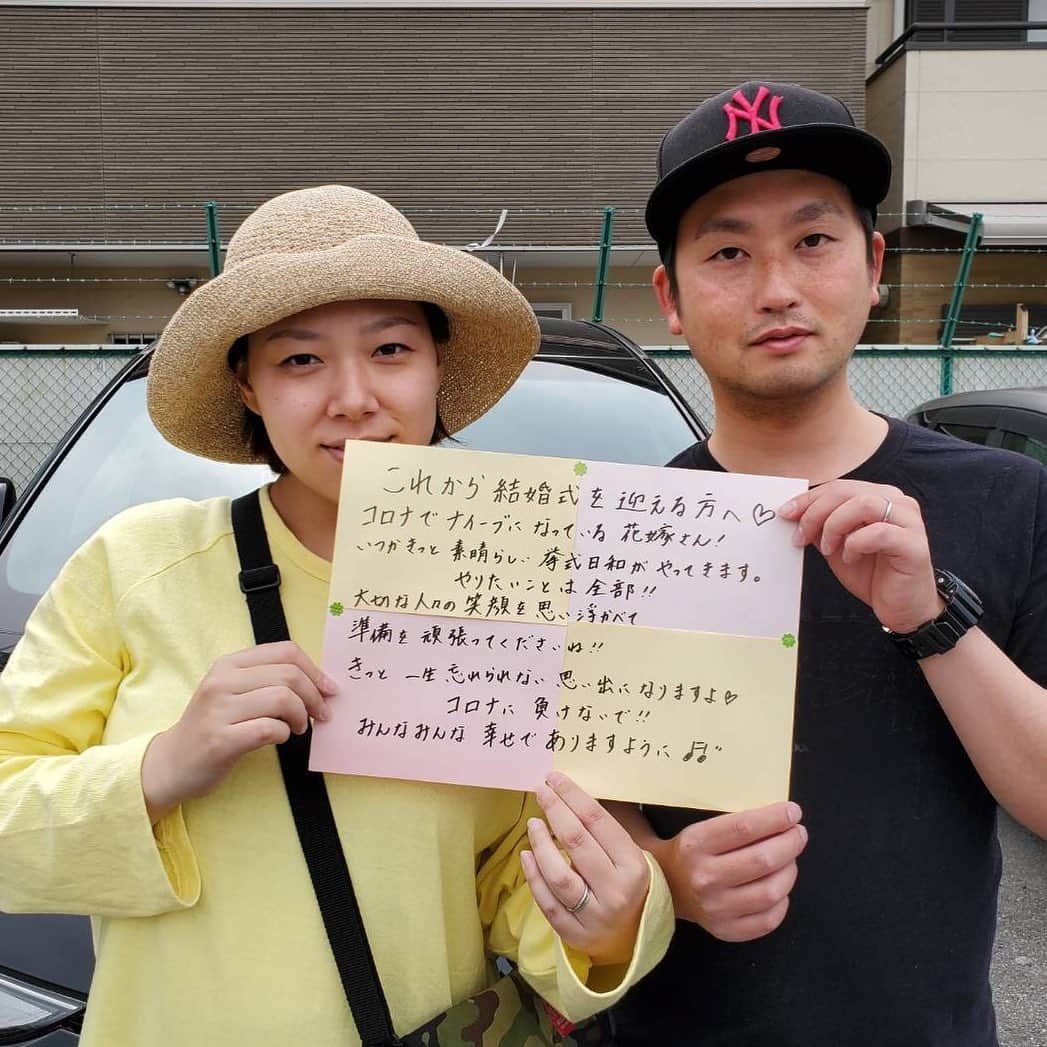 NY
これから結婚式を迎える方へ♡
コロナでナイーブになっている花嫁さん!
いつかきっと素晴らしい挙式日和がやってきます。
やりたいことは全部!!
大切な人々の笑顔を思い浮かべて
準備を頑張ってくださいね!!
きっと一生忘れられない思い出になりますよ♡
コロナに負けないで!!
みんなみんな幸せでありますように♫